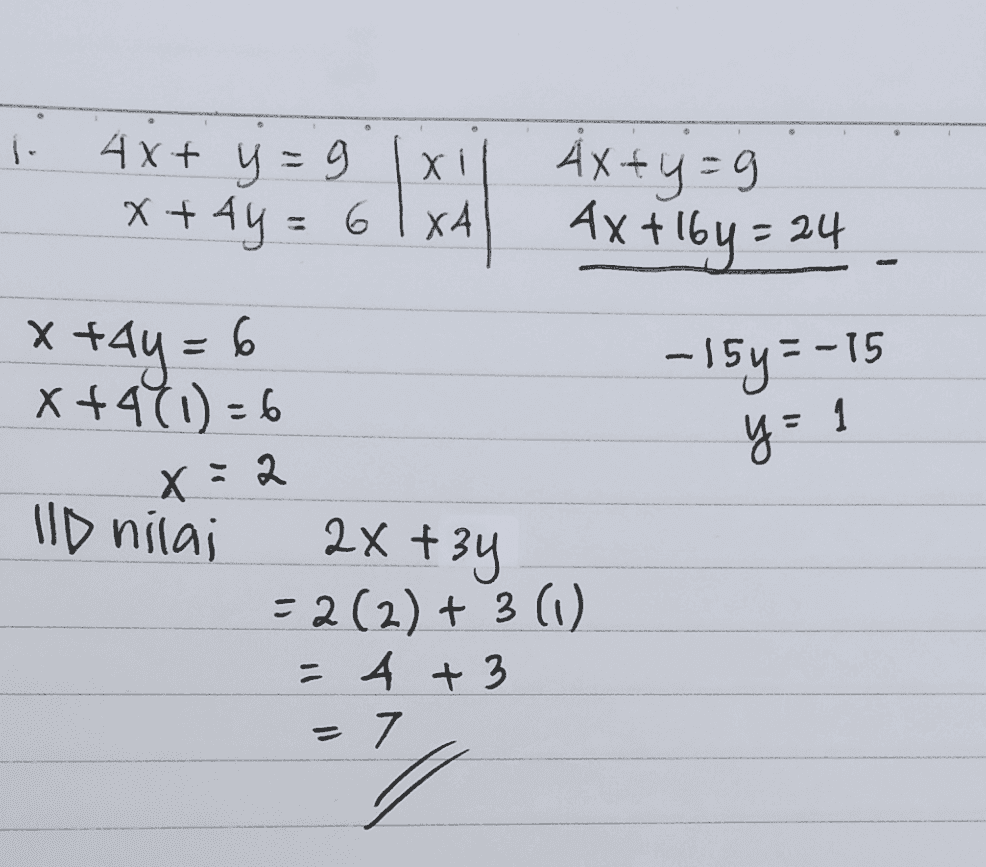 1. 4x + y = 9 | x1 | 4x + y = 9
x + 4y = 6 | x4 | 4x + 16y = 24 -
x + 4y = 6 -15y = -15
x + 4(1) = 6 y = 1
x = 2
nilai 2x + 3y
= 2(2) + 3(1)
= 4 + 3
= 7